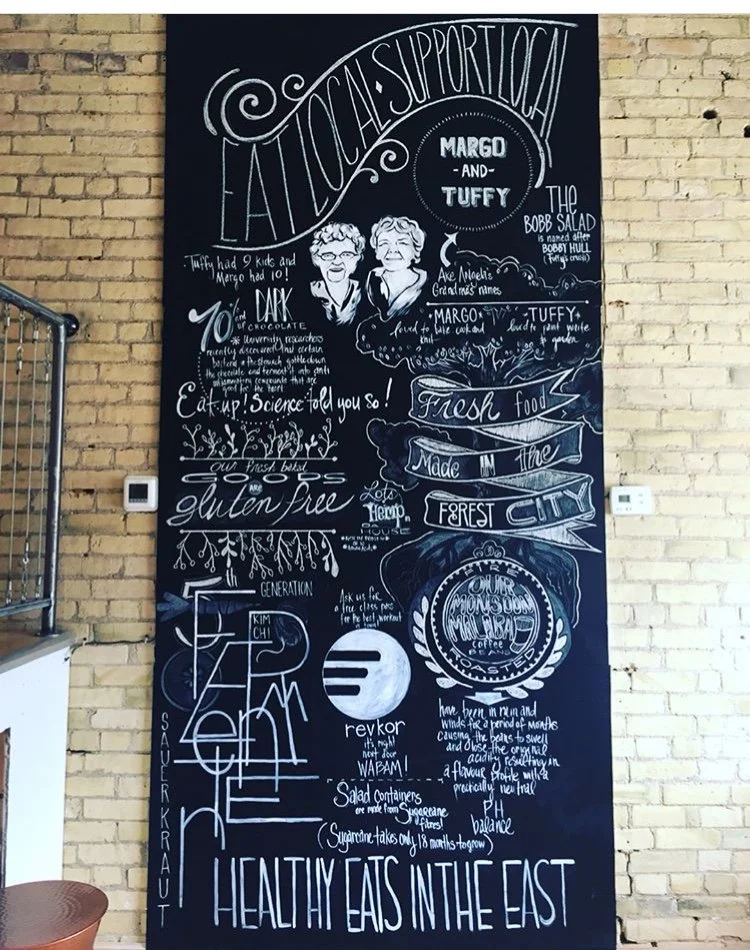 EAT LOCAL · SUPPORT LOCAL
MARGO
- AND -
TUFFY
THE
BOBB SALAD
is named after
BOBBY HULL
(Tuffy's crush)
Tuffy had 9 kids and
Margo had 10!
Are Angela's
Grandma's names
MARGO
loved to bake cook and
knit
TUFFY
loved to paint write
to garden
70% and
DARK
CHOCOLATE
* University researchers
recently discovered that certain
bacteria in the stomach gobble down
the chocolate and ferment it into anti
inflammatory compounds that are
good for the heart
Eat up! Science told you so!
Fresh food
Made IN the
FOREST CITY
Our fresh baked
GOODS
ARE
gluten free
Let's
Hemp
DA
HOUSE
5th
GENERATION
KIM
CHI
SAUERKRAUT
Ask us for
a free class pass
for the best workout
in town!
revkor
it's right
next door
WABAM!
FIRE
OUR
MONSOON
MALABAR
coffee
BEANS
ROASTED
have been in rain and
winds for a period of months
causing the beans to swell
and lose the original
acidity resulting in
a flavour profile with a
practically neutral
PH
balance
Salad containers
are made from Sugarcane
fibres!
(Sugarcane takes only 18 months to grow)
HEALTHY EATS IN THE EAST